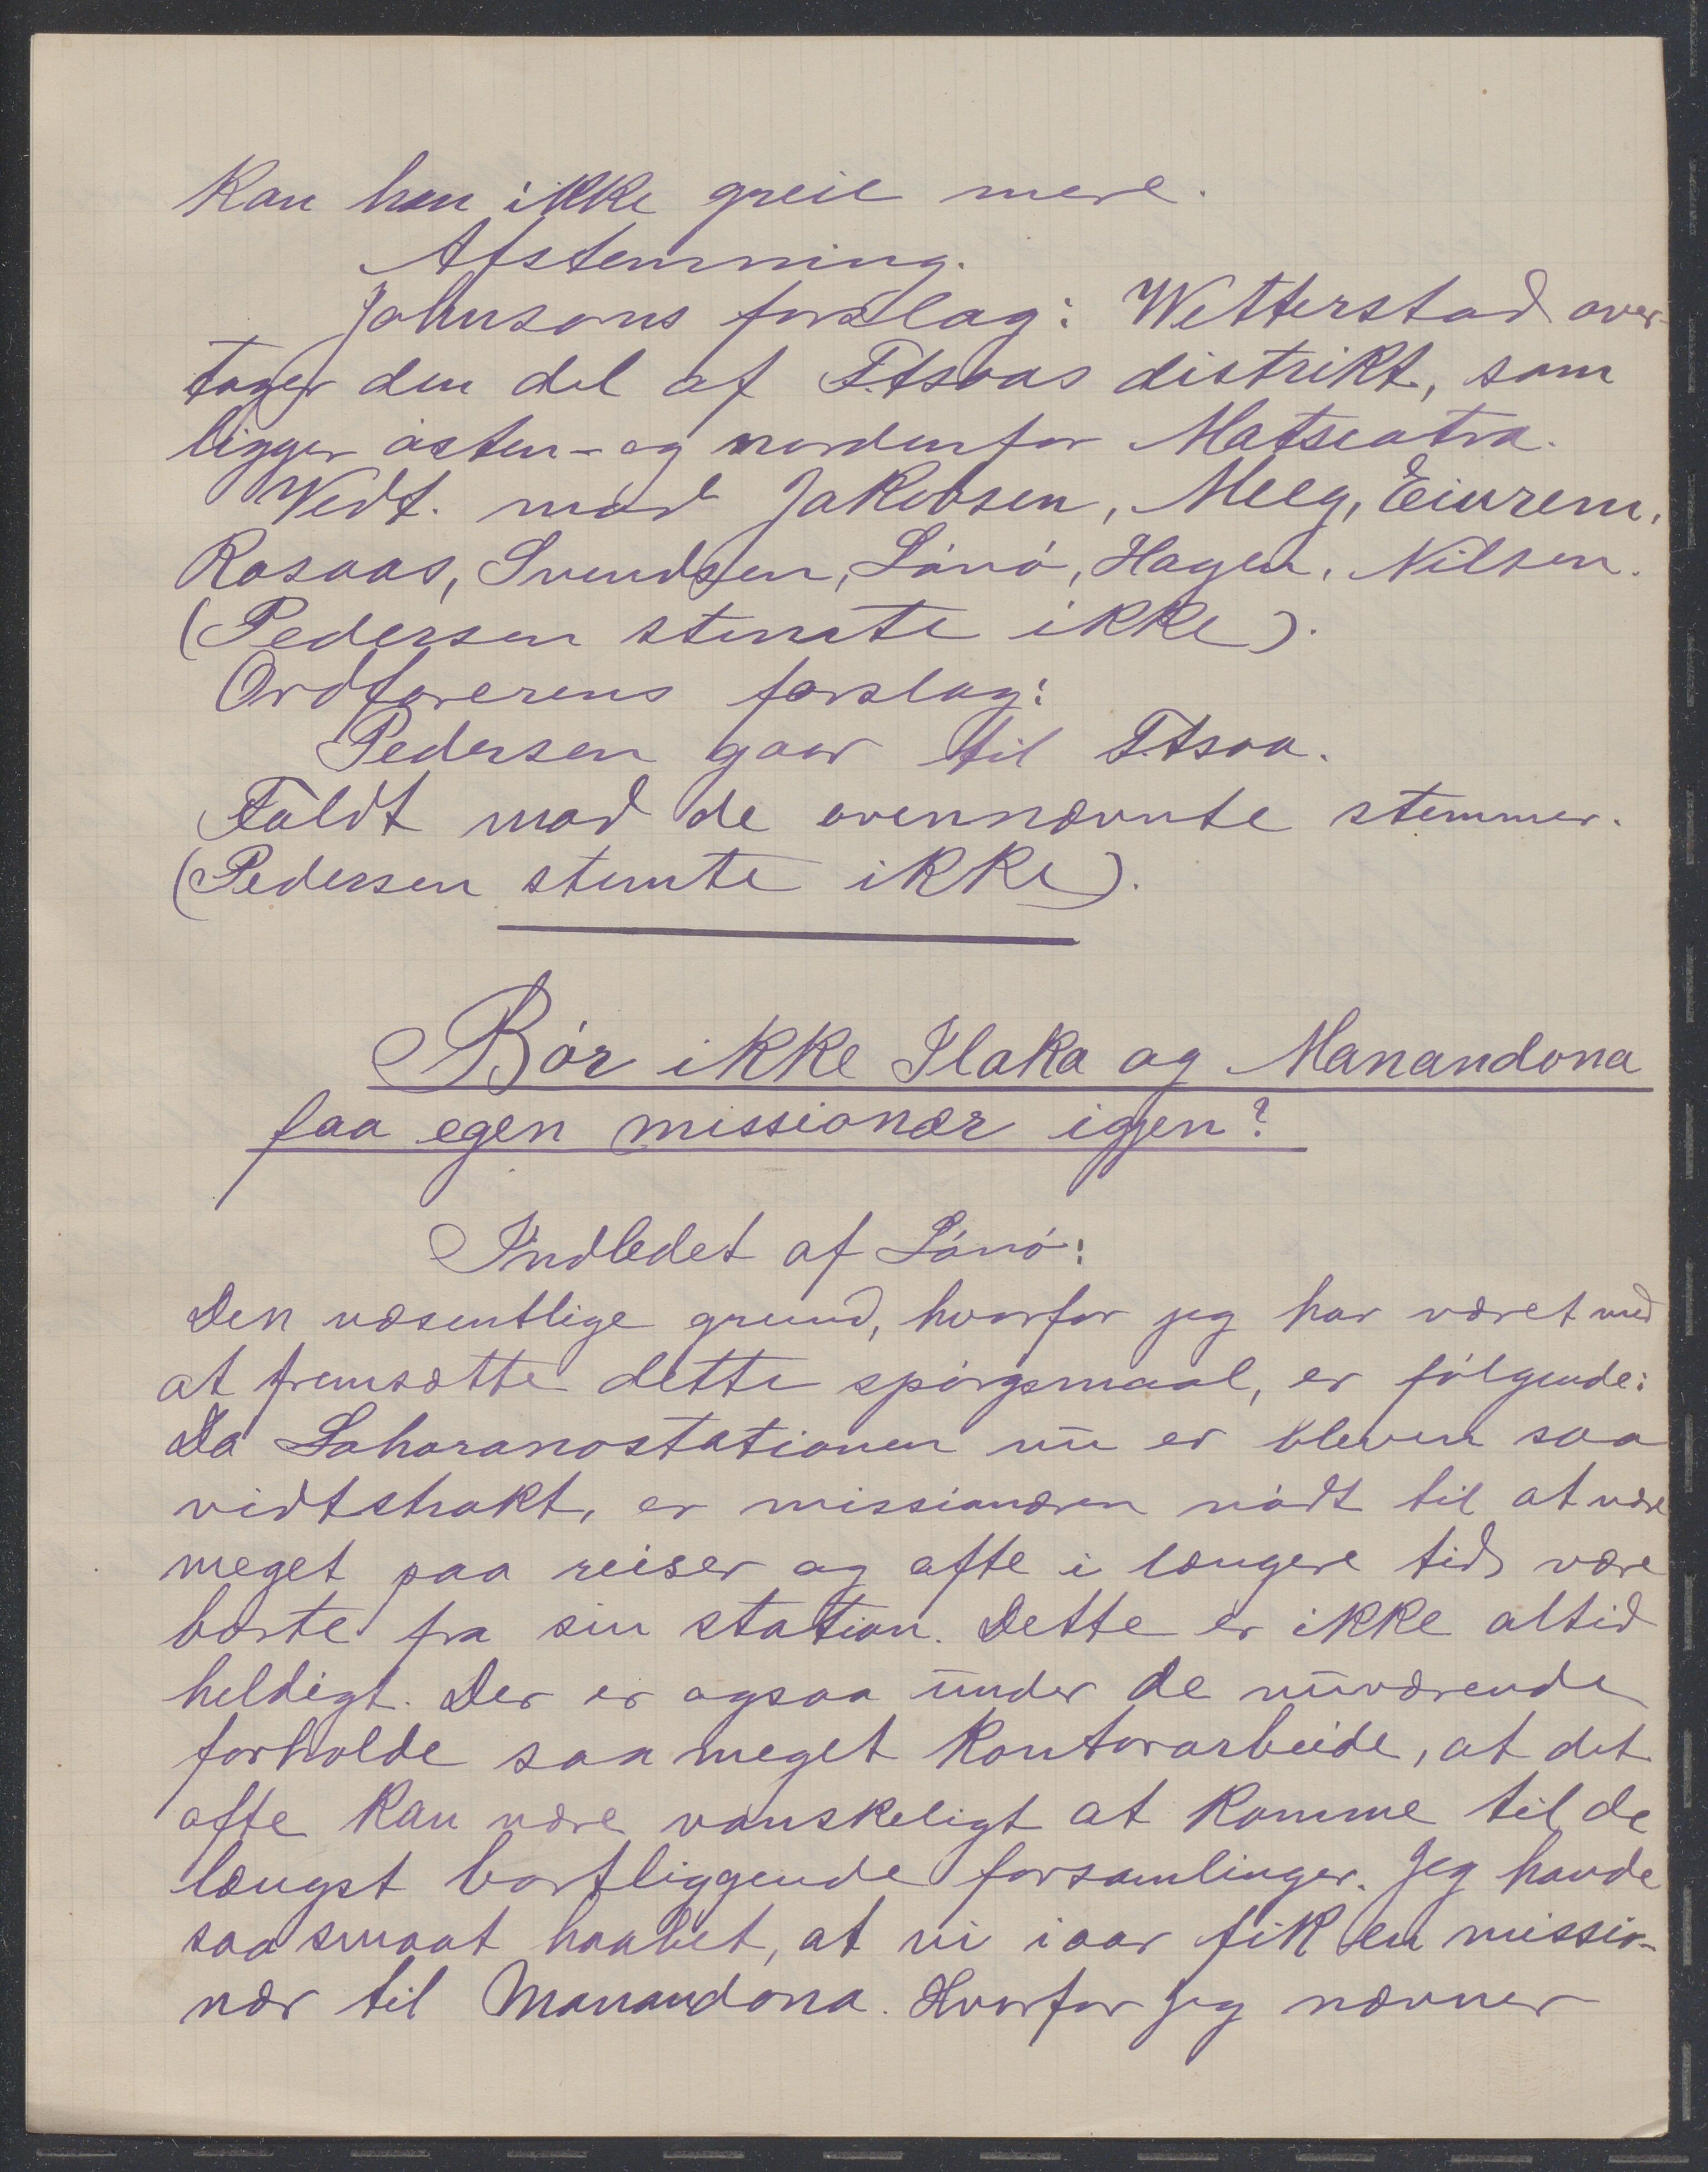 Kan han ikke greie mere.
Afstemning.
Johnsons forslag: Wetterstad over-
tager den del af Itsoas distrikt, som
ligger østen- og nordenfor Matseatra.
Vedt. mod Jakobsen, Meeg, Einrem,
Rosaas, Svendsen, Lønø, Hagen, Nilsen.
(Pedersen stemte ikke).
Ordførerens forslag:
Pedersen gaar til Itsoa.
Faldt mod de ovennævnte stemmer.
(Pedersen stemte ikke).
Bør ikke Ilaka og Manandona
faa egen missionær igjen?
Indledet af Lønø:
Den væsentlige grund, hvorfor jeg har været med
at fremsætte dette spørgsmaal, er følgende:
Da Loharanostationen nu er bleven saa
vidtstrakt, er missionæren nødt til at være
meget paa reiser og ofte i længere tid være
borte fra sin station. Dette er ikke altid
heldigt. Der er ogsaa under de nuværende
forholde saa meget kontorarbeide, at det
ofte kan være vanskeligt at komme til de
længst bortliggende forsamlinger. Jeg havde
saa smaat haabet, at vi iaar fik en missio-
nær til Manandona. Hvorfor jeg nævner